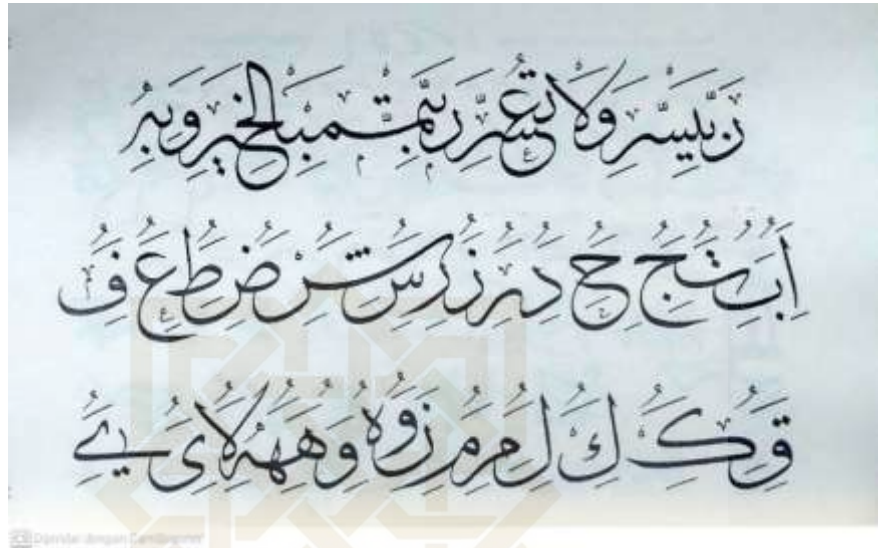 رَبِّ يَسِّرْ وَلَا تُعَسِّرْ رَبِّ تَمِّمْ بِالْخَيْرِ وَبِهِ
ا ب ت ج ح د ر ز ر س ش ر ض ط ع ف
ق ك ك ل م م ن و ه و ه ه لا ى ي
Dipindai dengan CamScanner